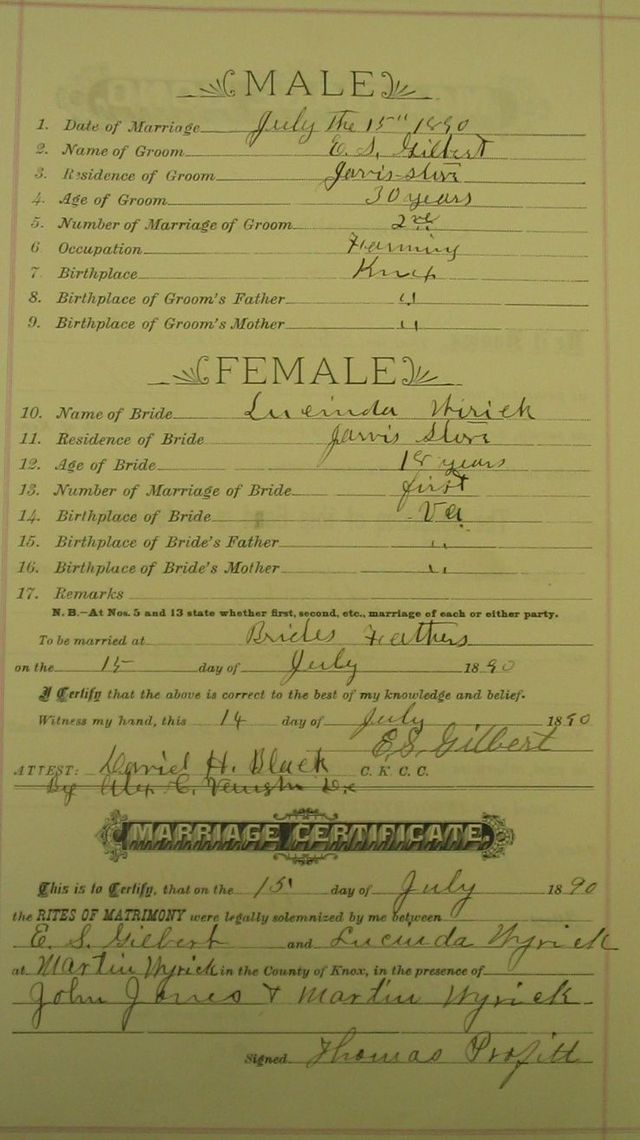 MALE
1. Date of Marriage July the 15" 1890
2. Name of Groom E. S. Gilbert
3. Residence of Groom Jarvis Store
4. Age of Groom 30 years
5. Number of Marriage of Groom 2nd
6 Occupation Farming
7 Birthplace Knox
8. Birthplace of Groom's Father "
9. Birthplace of Groom's Mother "
FEMALE
10. Name of Bride Lucinda Wirick
11. Residence of Bride Jarvis Store
12. Age of Bride 18 years
13. Number of Marriage of Bride first
14. Birthplace of Bride Va
15. Birthplace of Bride's Father "
16. Birthplace of Bride's Mother "
17. Remarks
N. B.—At Nos. 5 and 13 state whether first, second, etc., marriage of each or either party.
To be married at Brides Feathers
on the 15 day of July 1890
I Certify that the above is correct to the best of my knowledge and belief.
Witness my hand, this 14 day of July 1890
E. S. Gilbert
ATTEST: H. Black C. K. C. C.
By Alex C.
MARRIAGE CERTIFICATE.
This is to Certify, that on the 15 day of July 1890
the RITES OF MATRIMONY were legally solemnized by me between
E. S. Gilbert and Lucinda Wyrick
at Martin Wyrick in the County of Knox, in the presence of
John Jones & Martin Wyrick
Signed Thomas Profitt